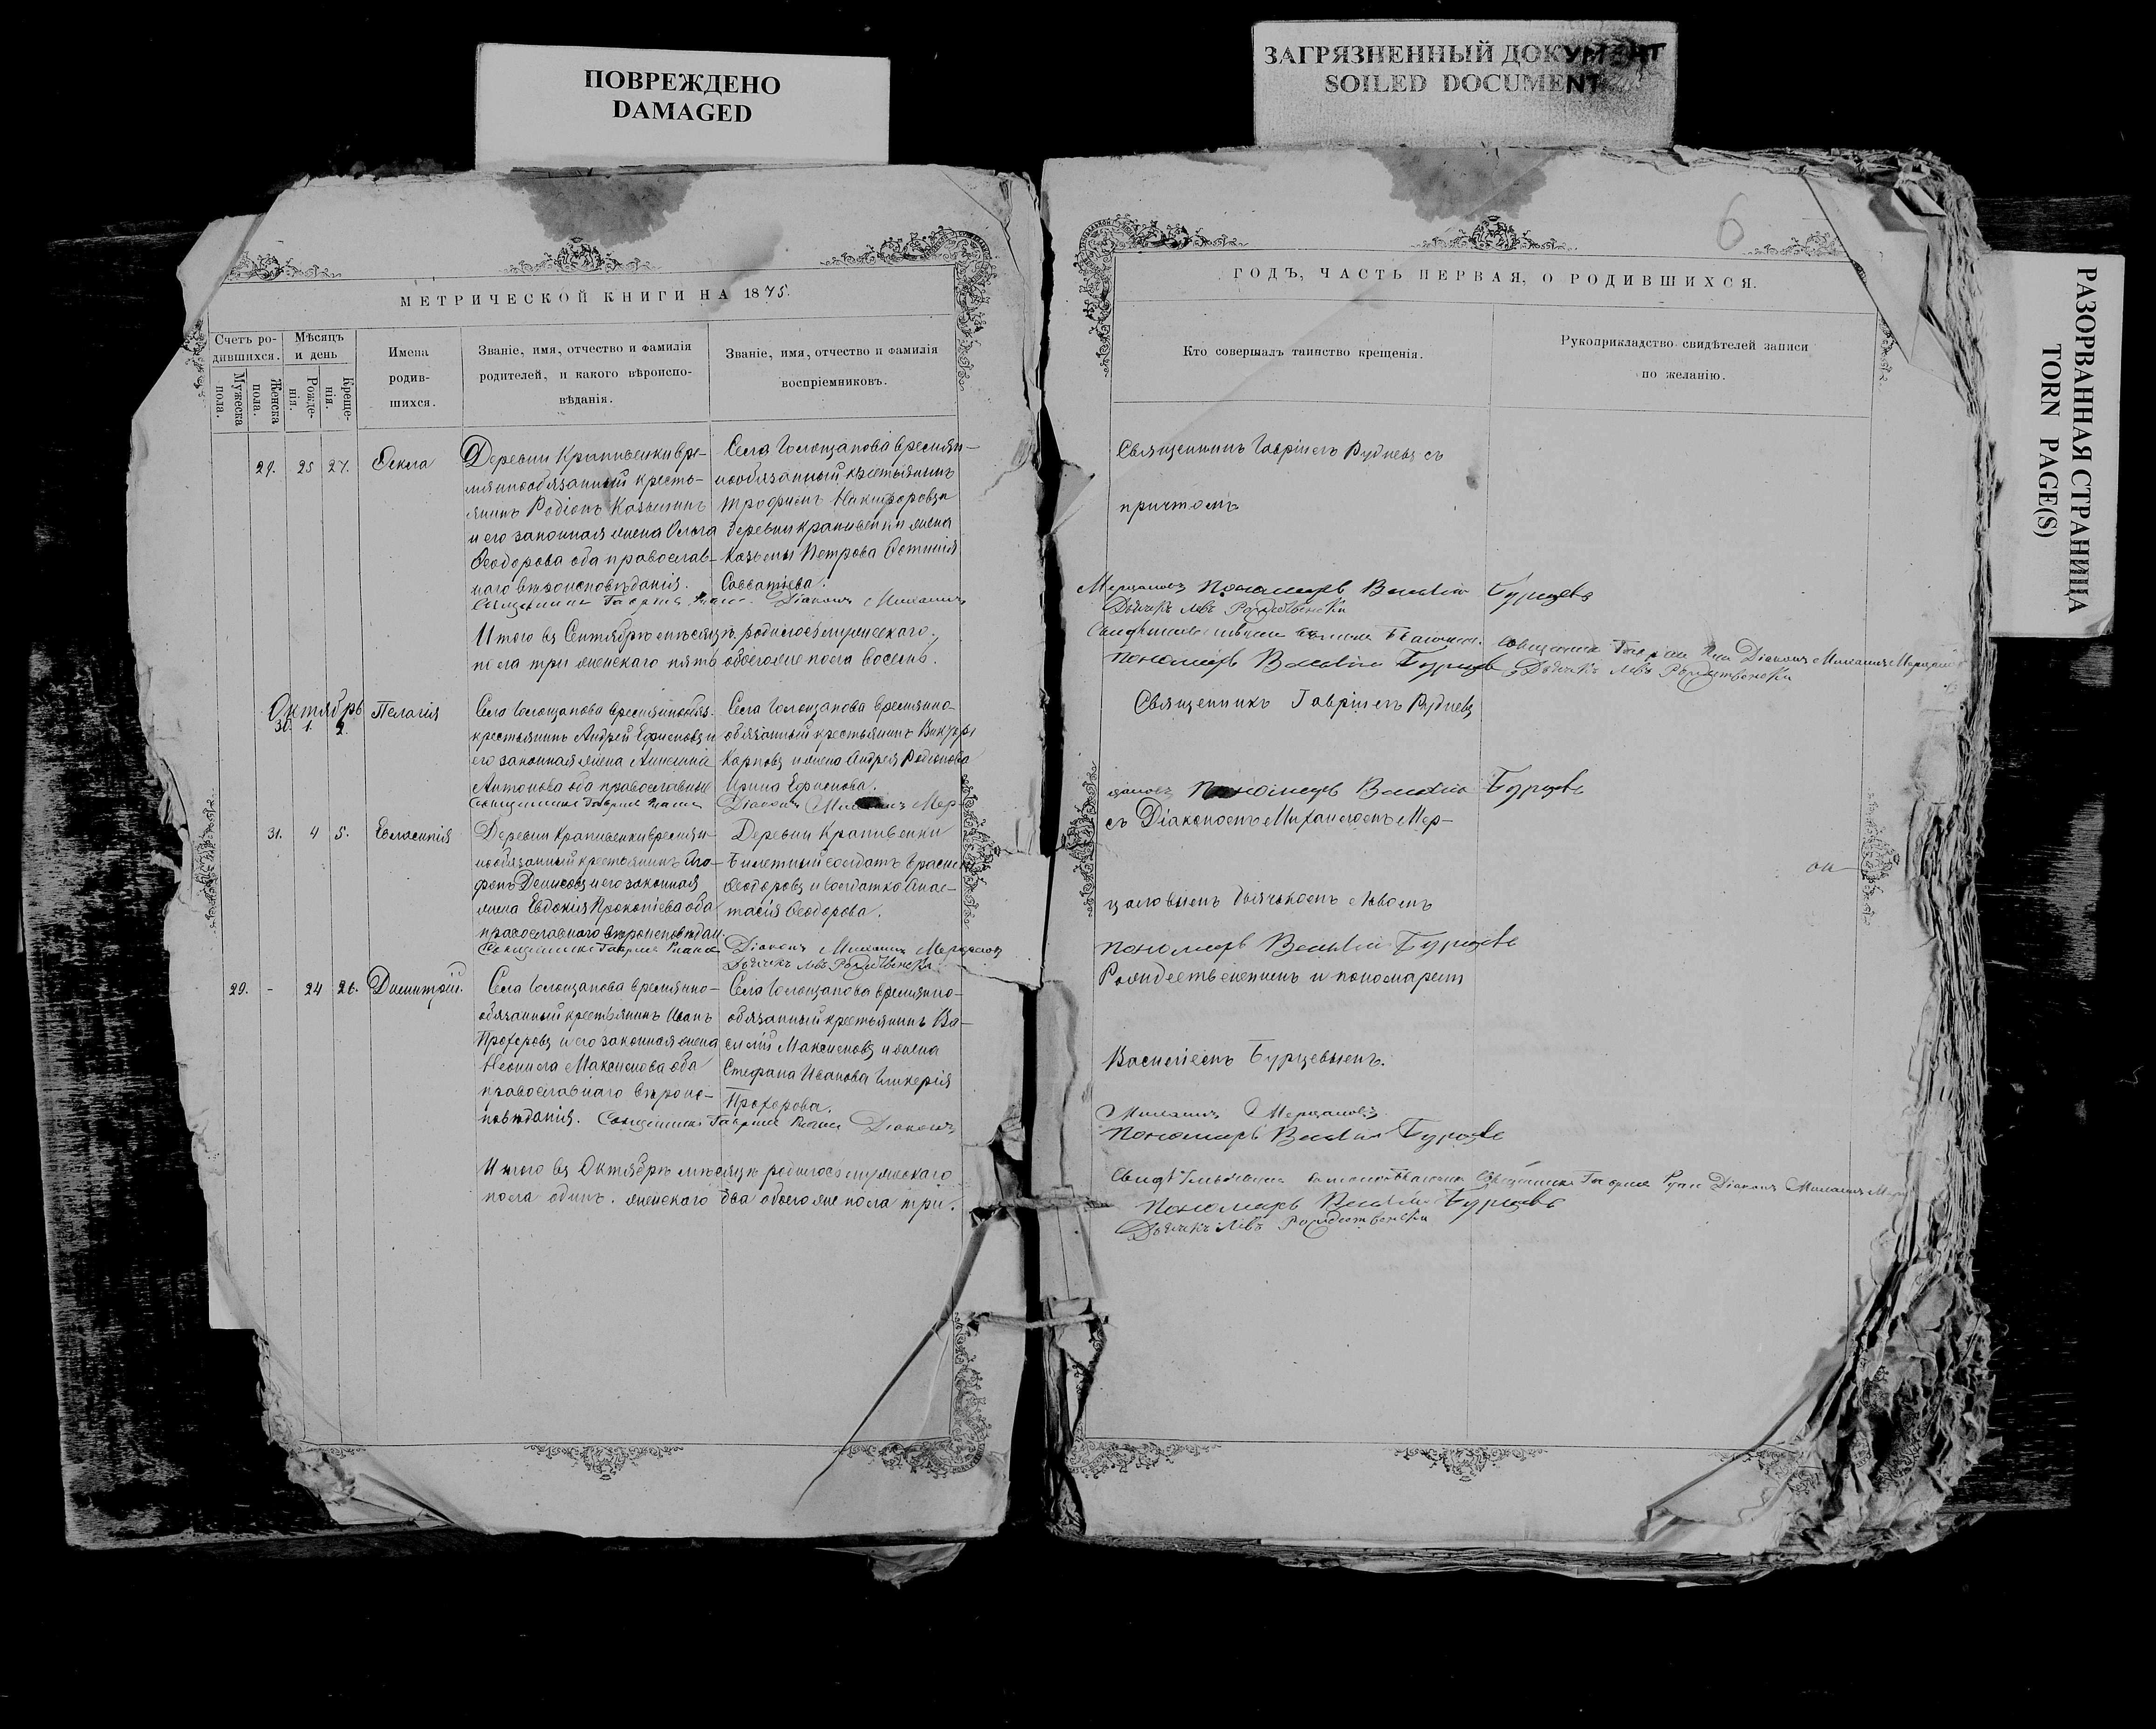 ПОВРЕЖДЕНО
DAMAGED
ЗАГРЯЗНЕННЫЙ ДОКУМЕНТ
SOILED DOCUMENT
РАЗОРВАННАЯ СТРАНИЦА
TORN PAGE(S)
6
МЕТРИЧЕСКОЙ КНИГИ НА 1875.
Счетъ ро-
дившихся.
Мѣсяцъ
и день
Мужеска
пола.
Женска
пола.
Рожде-
нія.
Креще-
нія.
Имена
родив-
шихся.
Званіе, имя, отчество и фамилія
родителей, и какого вѣроиспо-
вѣданія.
Званіе, имя, отчество и фамилія
воспріемниковъ.
29. 25 27. Ѳекла
Деревни Крапивенки вре-
мяннообязанный кресть-
янинъ Родіонъ Козьминъ
и его законная жена Ольга
Ѳеодорова оба православ-
наго вѣроисповѣданія.
Села Голощапова времян-
нообязанный крестьянинъ
Трофимъ Никифоровъ и
деревни Крапивенки жена
Козьмы Петрова Фотинія
Савватіева.
Діаконъ Михаилъ
Итого въ Сентябрѣ мѣсяцѣ родилось мужескаго
пола три женскаго пять обоего же пола восемь.
Октябрь
30. 1. 2. Пелагія
Села Голощапова времяннообяз.
крестьянинъ Андрей Ефимовъ и
его законная жена Анисія
Антонова оба православные
Села Голощапова времянно-
обязанный крестьянинъ Викторъ
Карповъ и жена Андрея Родіонова
Ирина Ефимова.
Діаконъ Михаилъ Мер-
31. 4 5. Евлампія
Деревни Крапивенки времян-
нообязанный крестьянинъ Ага-
фонъ Денисовъ и его законная
жена Евдокія Прокопіева оба
православнаго вѣроисповѣдан.
Деревни Крапивенки
Билетный солдатъ Ерасмъ
Ѳеодоровъ и солдатка Анас-
тасія Ѳеодорова.
Діаконъ Михаилъ Мерцаловъ
Дьячекъ Левъ Рождественскій
29. - 24 26. Димитрій.
Села Голощапова времянно-
обязанный крестьянинъ Иванъ
Прохоровъ и его законная жена
Неонила Максимова оба
православнаго вѣроис-
повѣданія.
Села Голощапова времянно-
обязанный крестьянинъ Ва-
силій Максимовъ и жена
Стефана Иванова Гликерія
Прохорова.
Священникъ Гавріилъ Діаконъ
Итого въ Октябрѣ мѣсяцѣ родилось мужескаго
пола одинъ. женскаго два обоего же пола три.
ГОДЪ, ЧАСТЬ ПЕРВАЯ, О РОДИВШИХСЯ.
Кто совершалъ таинство крещенія.
Рукоприкладство свидѣтелей записи
по желанію.
Священникъ Гавріилъ Рудневъ съ
причтомъ
Мерцаловъ Пономарь Василій Бурцевъ
Дьячекъ Левъ Рождественскій
Священникъ Гавріилъ Діаконъ Михаилъ Мерцаловъ
Пономарь Василій Бурцевъ Дьячекъ Левъ Рождественскій
Священникъ Гавріилъ Рудневъ
цаловъ Пономарь Василій Бурцевъ
съ Діакономъ Михаиломъ Мер-
цаловымъ дьячкомъ Львомъ
Пономарь Василій Бурцевъ
Рождественскимъ и пономаремъ
Василіемъ Бурцевымъ.
Михаилъ Мерцаловъ
Пономарь Василій Бурцевъ
Священникъ Гавріилъ Діаконъ Михаилъ
Пономарь Василій Бурцевъ
Дьячекъ Левъ Рождественскій